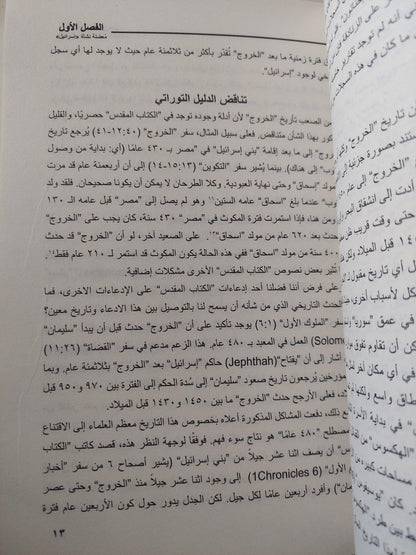 الفصل الأول
معضلة نشأة «إسرائيل»
فترة زمنية ما بعد "الخروج" تُقدّر بأكثر من ثلاثمئة عام حيث لا يوجد لها أي سجل
خي لوجود "إسرائيل".
تناقض الدليل التوراتي
من الصعب تأريخ "الخروج" لأن أدلة وجوده توجد في "الكتاب المقدس" حصريًا، والقليل
كور بهذا الشأن متناقض. فعلى سبيل المثال، سفر "الخروج" (١٢:٤٠-٤١) يُرجع تاريخ
وج" إلى ما بعد إقامة "بني إسرائيل" في "مصر" بـ ٤٣٠ عامًا (أي: بداية من وصول
وب" إلى هناك). بينما يُشير سفر "التكوين" (١٥:١٣-١٤) إلى أن أربعمئة عام قد مرت
مولد "إسحاق" وحتى نهاية العبودية. وكلا الطرحان لا يمكن أن يكونا صحيحان. فلقد ولد
وب" عندما بلغ "اسحاق" عامه الستين" وهو لم يصل إلى "مصر" قبل عامه الـ ١٣٠
ومن هنا، فإذا استمرت فترة المكوث في "مصر" ٤٣٠ سنة، كان يجب على "الخروج"
من مولد "إسحاق"". على الصعيد أخر، لو أن "الخروج" قد حدث
٤٠٠ سنة من مولد "إسحاق" ففي هذه الحالة يكون المكوث قد استمر لـ ٢١٠ عام فقط.
ثير بعض نصوص "الكتاب المقدس" الأخرى مشكلات إضافية.
على فرض أننا فضلنا أحد إدعاءات "الكتاب المقدس" على الإدعاءات الاخرى، فما
لحدث التاريخي الذي من شأنه أن يسمح لنا بالتوصيل بين هذا الادعاء وتاريخ معين؟
سفر "الملوك الأول" (٦:١) يوجد تأكيد على أن "الخروج" حدث قبل أن يبدأ "سليمان"
Solomo) العمل في المعبد بـ ٤٨٠ عام. هذا الزعم يدعمه سفر "القضاة" (١١:٢٦)
أشار إلى أن "يفتاح"(Jephthah) حاكم "إسرائيل" بعد "الخروج" بثلاثمئة عام. وبما
مؤرخين يُرجعون تاريخ صعود "سليمان" إلى سُدة الحكم إلى الفترة بين ٩٧٠ و ٩٥٠ قبل
د، فعلى الأرجح حدث "الخروج" ما بين ١٤٥٠ و ١٤٣٠ قبل الميلاد.
ع ذلك، دفعت المشاكل المذكورة أعلاه بخصوص هذا التاريخ معظم العلماء إلى الاقتناع
مصطلح "٤٨٠ عامًا" هو نتاج سوء فهم. فوفقًا لوجهة النظر هذه، قصد كاتب "الكتاب
س" أن يصف اثنا عشر جيلًا من "بني إسرائيل" (يشير أصحاح ٦ من سفر "أخبار
الأول" (1Chronicles 6) إلى وجود اثنا عشر جيلًا منذ "الخروج" وحتى عصر
مان") وأفرد أربعين عامًا لكل جيل. لكن الجدل يدور حول كون الأربعين عام فترة
١٣